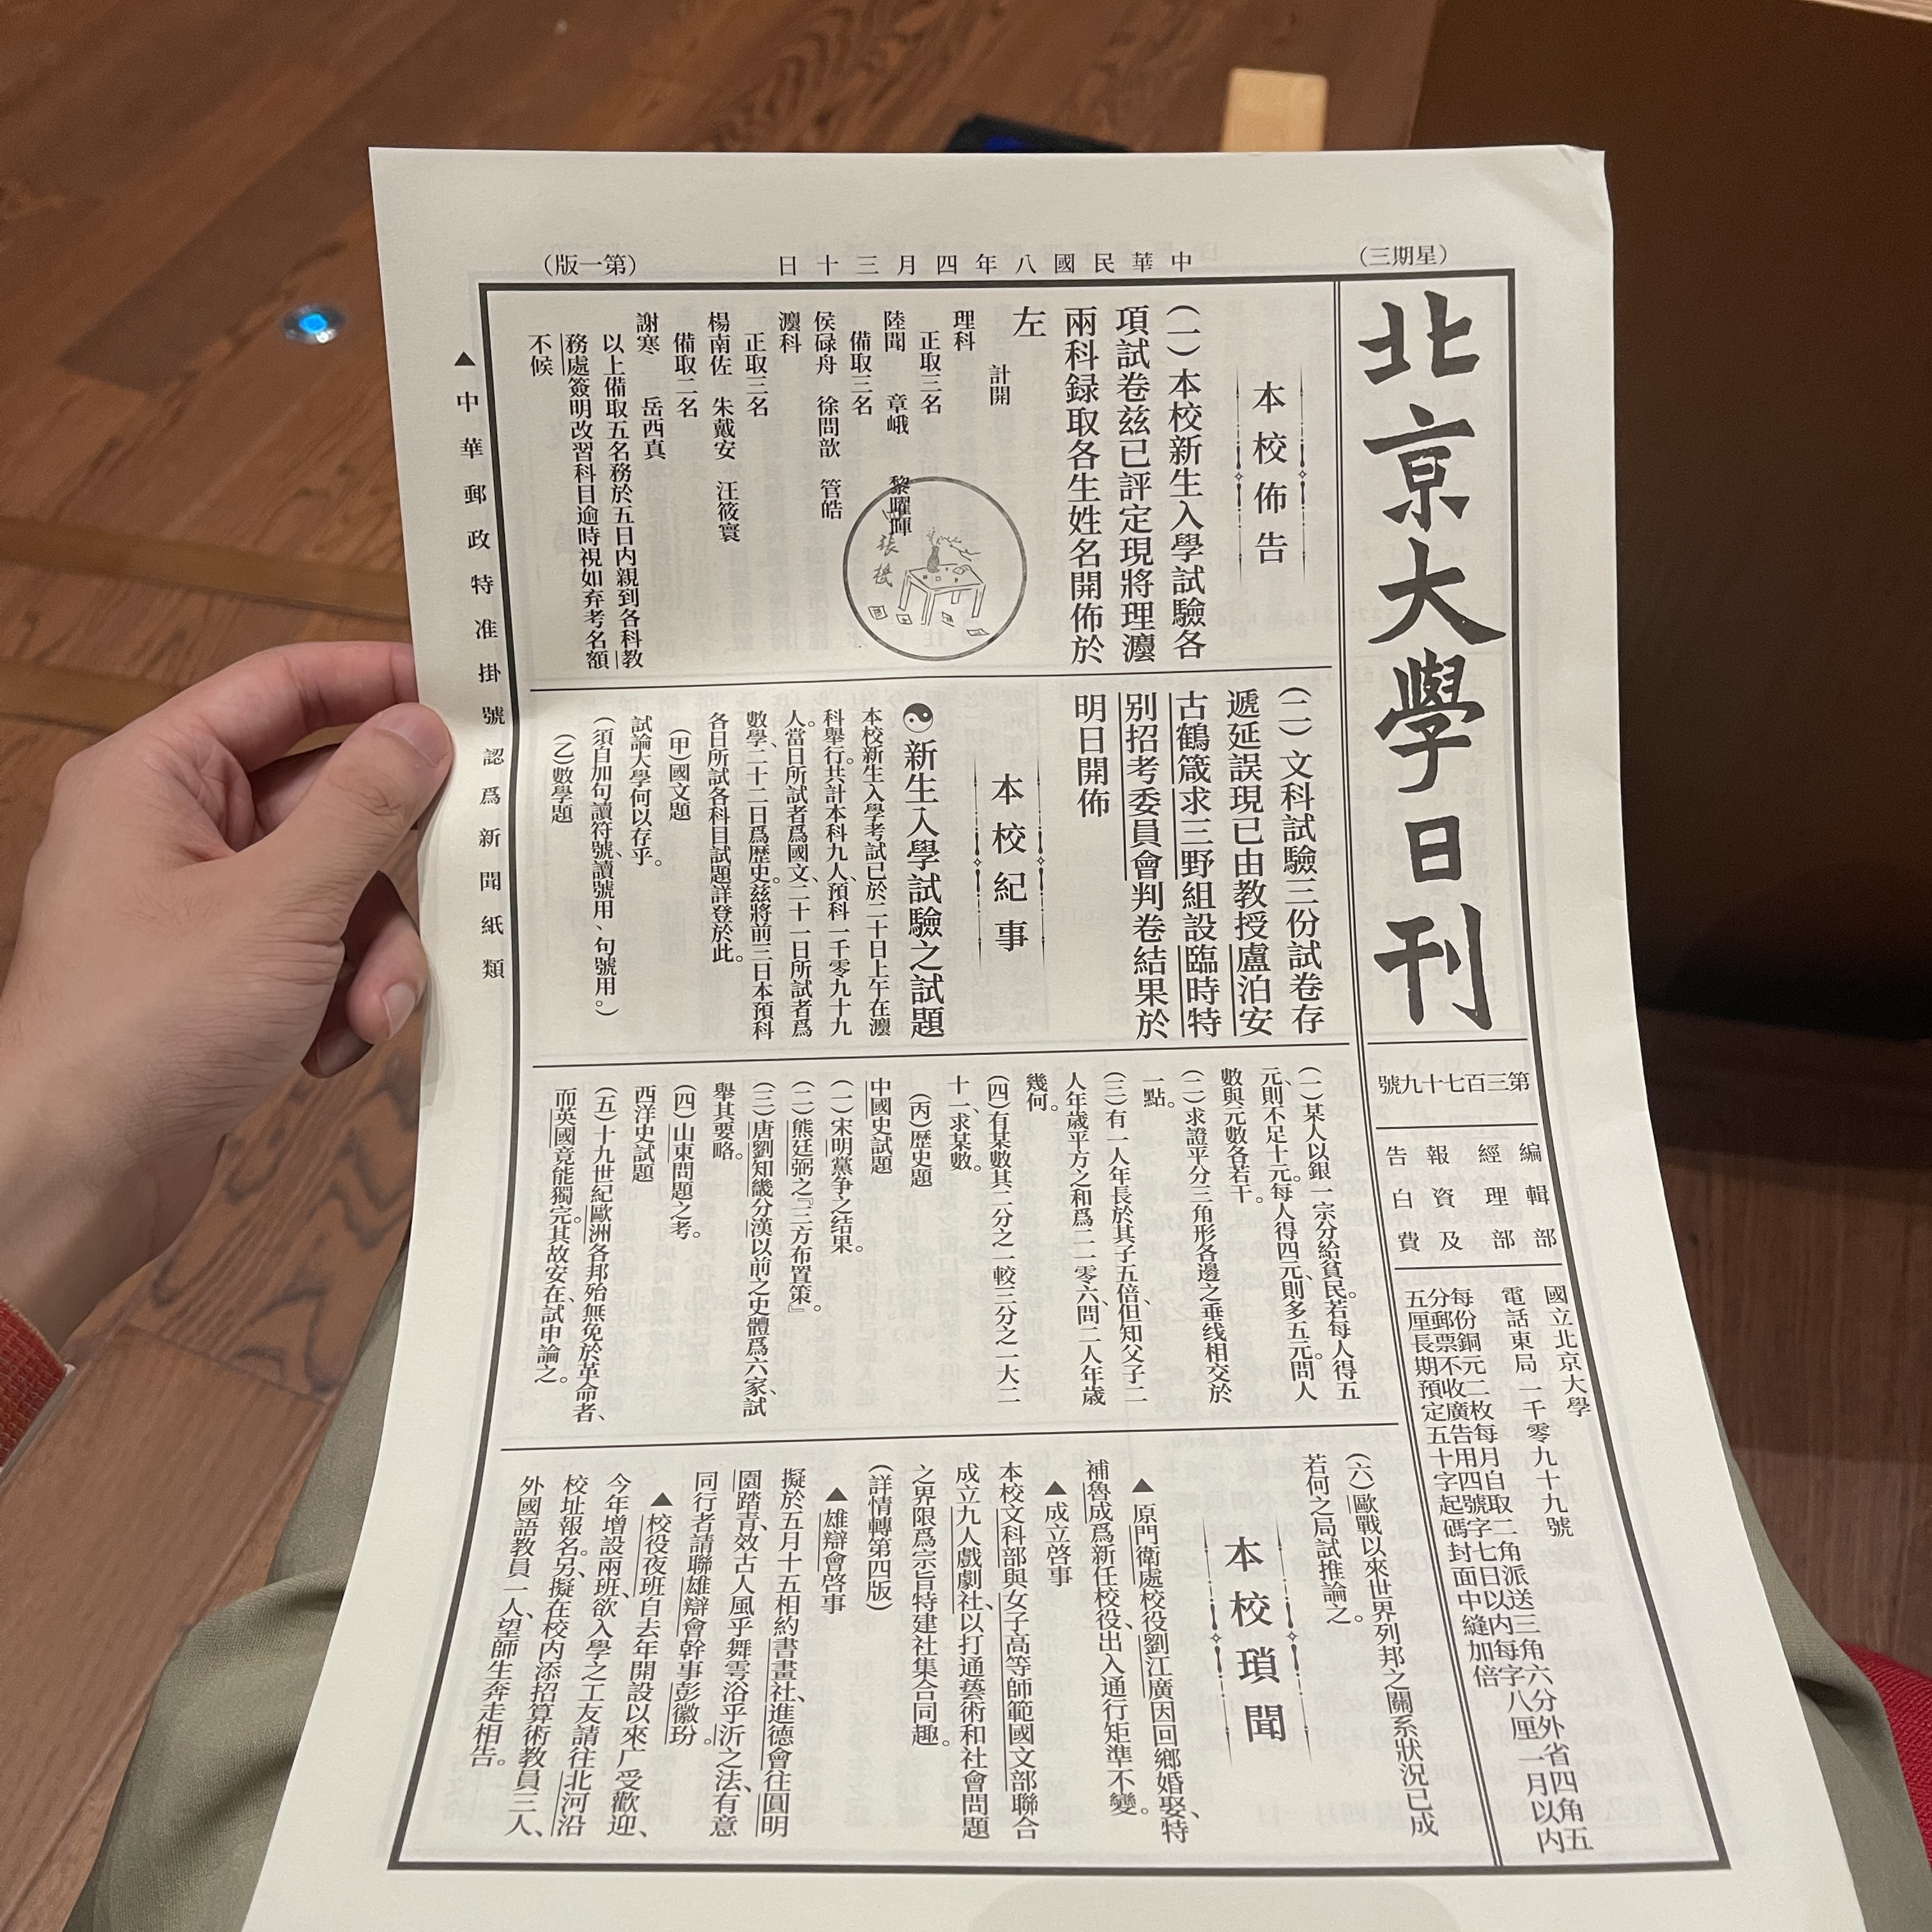 (星期三)
中華民國八年四月三十日
(第一版)
北京大學日刊
第三百七十九號
編輯部
經理部
報資及
告白費
國立北京大學
電話東局一千零九十九號
每份銅元二枚每月自取二角派送三角六分外省四角五
分郵票不收廣告用四號字七日以內每字八厘一月以內
五厘長期預定五十字起碼封面中縫加倍
本校佈告
(一)本校新生入學試驗各
項試卷茲已評定現將理灋
兩科録取各生姓名開佈於
左
計開
理科
正取三名
陸聞 章峨 黎曜暉
備取三名
侯碌舟 徐問歆 管皓
灋科
正取三名
楊南佐 朱戴安 汪筱寰
備取二名
謝寒 岳西真
以上備取五名務於五日内親到各科教
務處簽明改習科目逾時視如弃考名額
不候
張
授
(二)文科試驗三份試卷存
遞延誤現已由教授盧泊安
古鶴箴求三野組設臨時特
别招考委員會判卷結果於
明日開佈
本校紀事
新生入學試驗之試題
本校新生入學考試已於二十日上午在灋
科舉行。共計本科九人、預科一千零九十九
人。當日所試者爲國文、二十一日所試者爲
數學、二十二日爲歷史。茲將前三日本預科
各日所試各科目試題詳登於此。
(甲)國文題
試論大學何以存乎。
(須自加句讀符號、讀號用、句號用。)
(乙)數學題
(一)某人以銀一宗分給貧民。若每人得五
元、則不足十元。每人得四元、則多五元。問人
數與元數各若干。
(二)求證平分三角形各邊之垂线相交於
一點。
(三)有一人年長於其子五倍、但知父子二
人年歲平方之和爲二一零六、問二人年歲
幾何。
(四)有某數其二分之一較三分之一大二
十一、求某數。
(丙)歷史題
中國史試題
(一)宋明黨争之结果。
(二)熊廷弼之『三方布置策』。
(三)唐劉知畿分漢以前之史體爲六家、試
舉其要略。
(四)山東問題之考。
西洋史試題
(五)十九世紀歐洲各邦殆無免於革命者、
而英國竟能獨完。其故安在、試申論之。
(六)歐戰以來世界列邦之關系狀況已成
若何之局試推論之。
本校瑣聞
▲原門衛處校役劉江廣因回鄉婚娶、特
補魯成爲新任校役、出入通行矩準不變。
▲成立啓事
本校文科部與女子高等師範國文部聯合
成立九人戲劇社、以打通藝術和社會問題
之界限爲宗旨特建社集合同趣。
(詳情轉第四版)
▲雄辯會啓事
擬於五月十五相約書畫社、進德會往圓明
園踏青、效古人風乎舞雩浴乎沂之法、有意
同行者請聯雄辯會幹事彭徽玢。
▲校役夜班自去年開設以來广受歡迎、
今年增設兩班、欲入學之工友請往北河沿
校址報名。另、擬在校内添招算術教員三人、
外國語教員一人、望師生奔走相告。
▲中華郵政特准掛號認爲新聞紙類